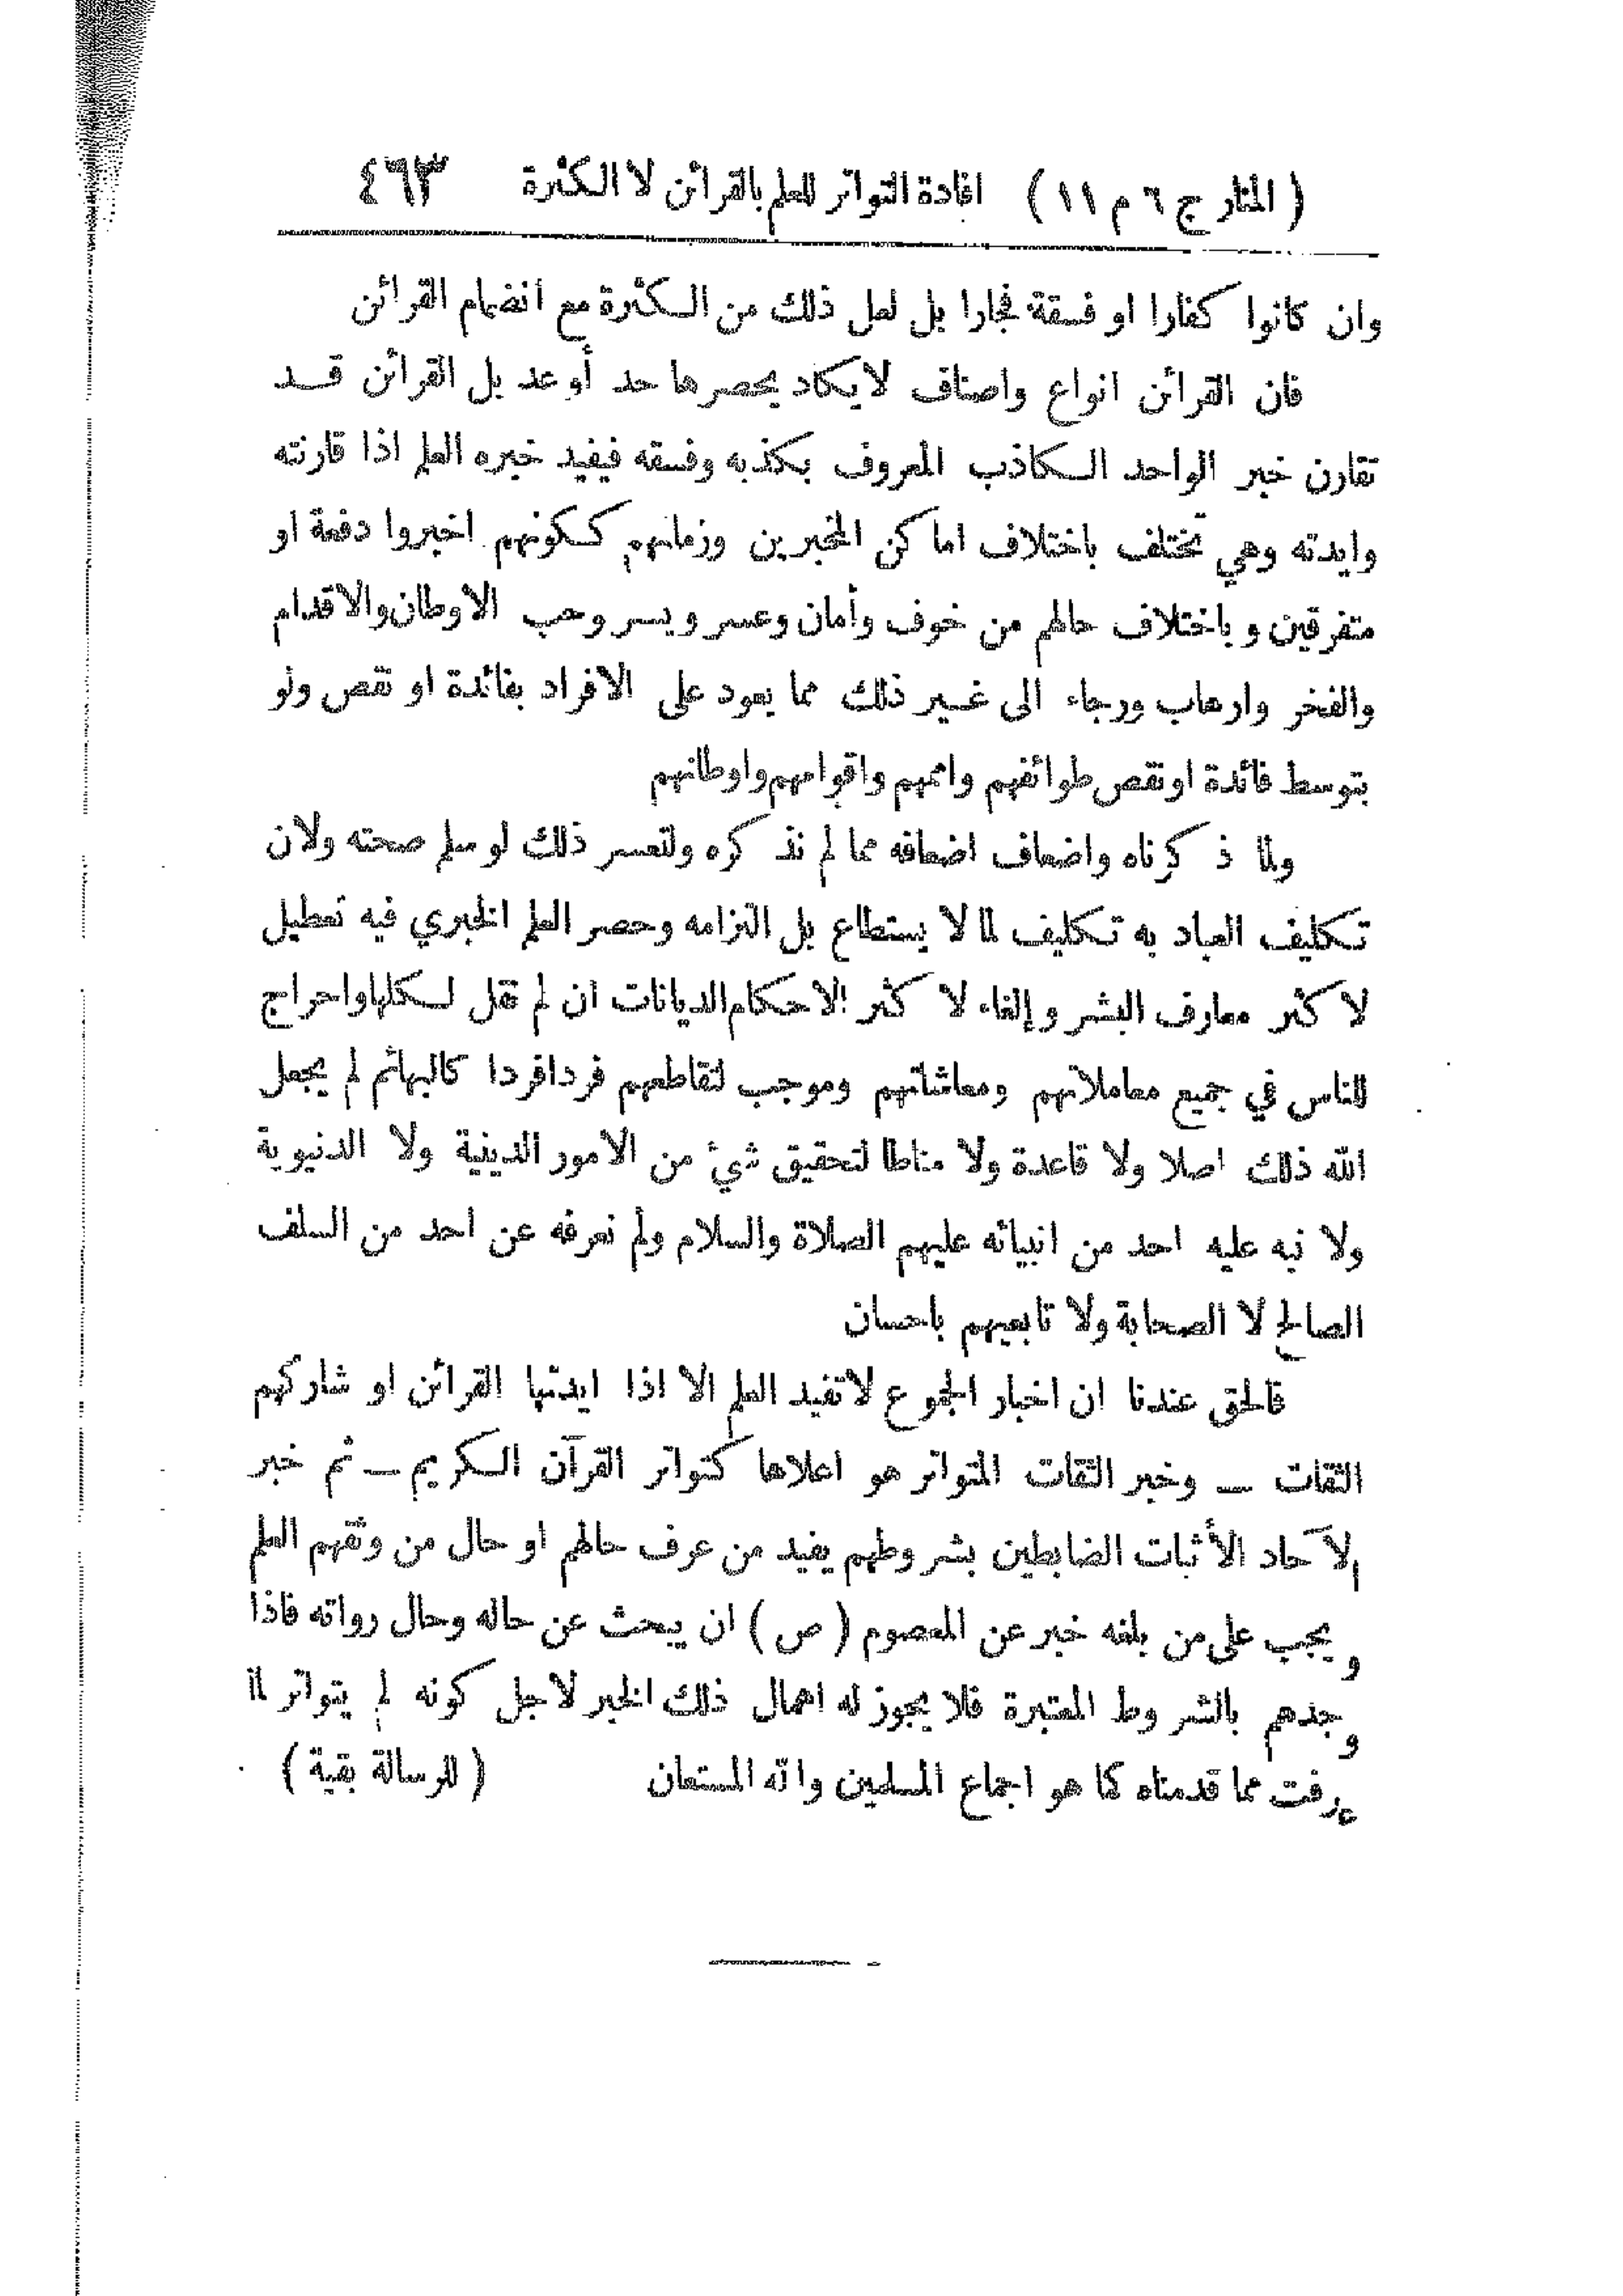 ( المنار ج ٦ م ١١ ) افادة التواتر للعلم بالقرائن لا الكثرة ٤٦٣
وان كانوا كفارا او فسقة فجارا بل لعل ذلك من الكثرة مع انضمام القرائن
فان القرائن انواع واصناف لا يكاد يحصرها حد أو عد بل القرائن قد
تقارن خبر الواحد الكاذب المعروف بكذبه وفسقه فيفيد خبره العلم اذا قارنته
وايدته وهي تختلف باختلاف اماكن المخبرين وزمانهم ككونهم اخبروا دفعة او
متفرقين وباختلاف حالهم من خوف وأمان وعسر ويسر وحب الاوطان والاقدام
والفخر وارهاب ورجاء الى غير ذلك مما يعود على الافراد بفائدة او نقص ولو
بتوسط فائدة او نقص طوائفهم واممهم واقوامهم واوطانهم
ولما ذكرناه واضعاف اضعافه مما لم نذكره ولتعسر ذلك لو سلم صحته ولان
تكليف العباد به تكليف لما لا يستطاع بل التزامه وحصر العلم الخبري فيه تعطيل
لاكثر معارف البشر وإلغاء لاكثر الاحكام الديانات ان لم نقل لكلها واحراج
للناس في جميع معاملاتهم ومعاشاتهم وموجب لتقاطعهم فردا فردا كالبهائم لم يجعل
الله ذلك اصلا ولا قاعدة ولا مناطا لتحقيق شيء من الامور الدينية ولا الدنيوية
ولا نبه عليه احد من انبيائه عليهم الصلاة والسلام ولم نعرفه عن احد من السلف
الصالح لا الصحابة ولا تابعيهم باحسان
فالحق عندنا ان اخبار الجموع لا تفيد العلم الا اذا ايدتها القرائن او شاركهم
الثقات — وخبر الثقات المتواتر هو اعلاها كتواتر القرآن الكريم — ثم خبر
الآحاد الأثبات الضابطين بشروطهم يفيد من عرف حالهم او حال من وثقهم العلم
ويجب على من بلغه خبر عن المعصوم ( ص ) ان يبحث عن حاله وحال رواته فاذا
وجدهم بالشروط المعتبرة فلا يجوز له اهمال ذلك الخبر لاجل كونه لم يتواتر لما
عرفت مما قدمناه كما هو اجماع المسلمين والله المستعان ( للرسالة بقية )